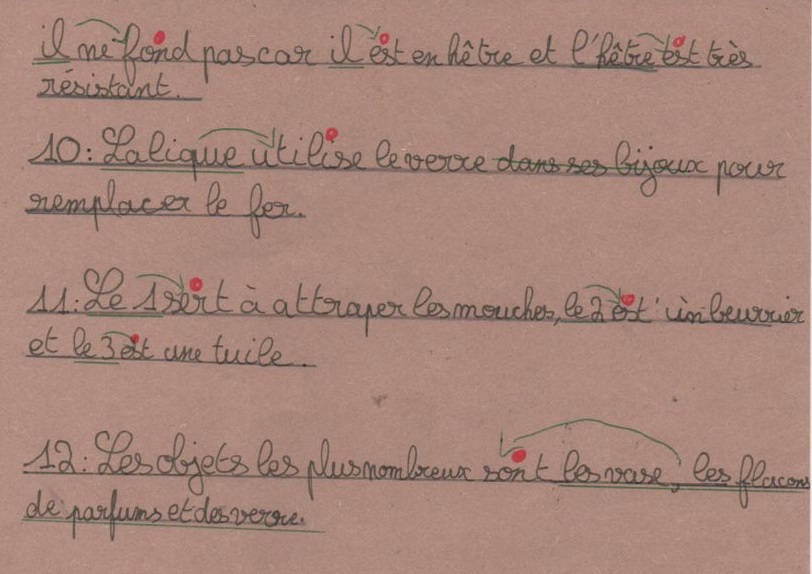 il ne fond pas car il est en hêtre et l'hêtre est très
résistant.
10: Lalique utilise le verre dans ses bijoux pour
remplacer le fer.
11: Le 1 sert à attraper les mouches, le 2 est un beurrier
et le 3 est une tuile.
12: Les objets les plus nombreux sont les vase, les flacons
de parfums et des verre.